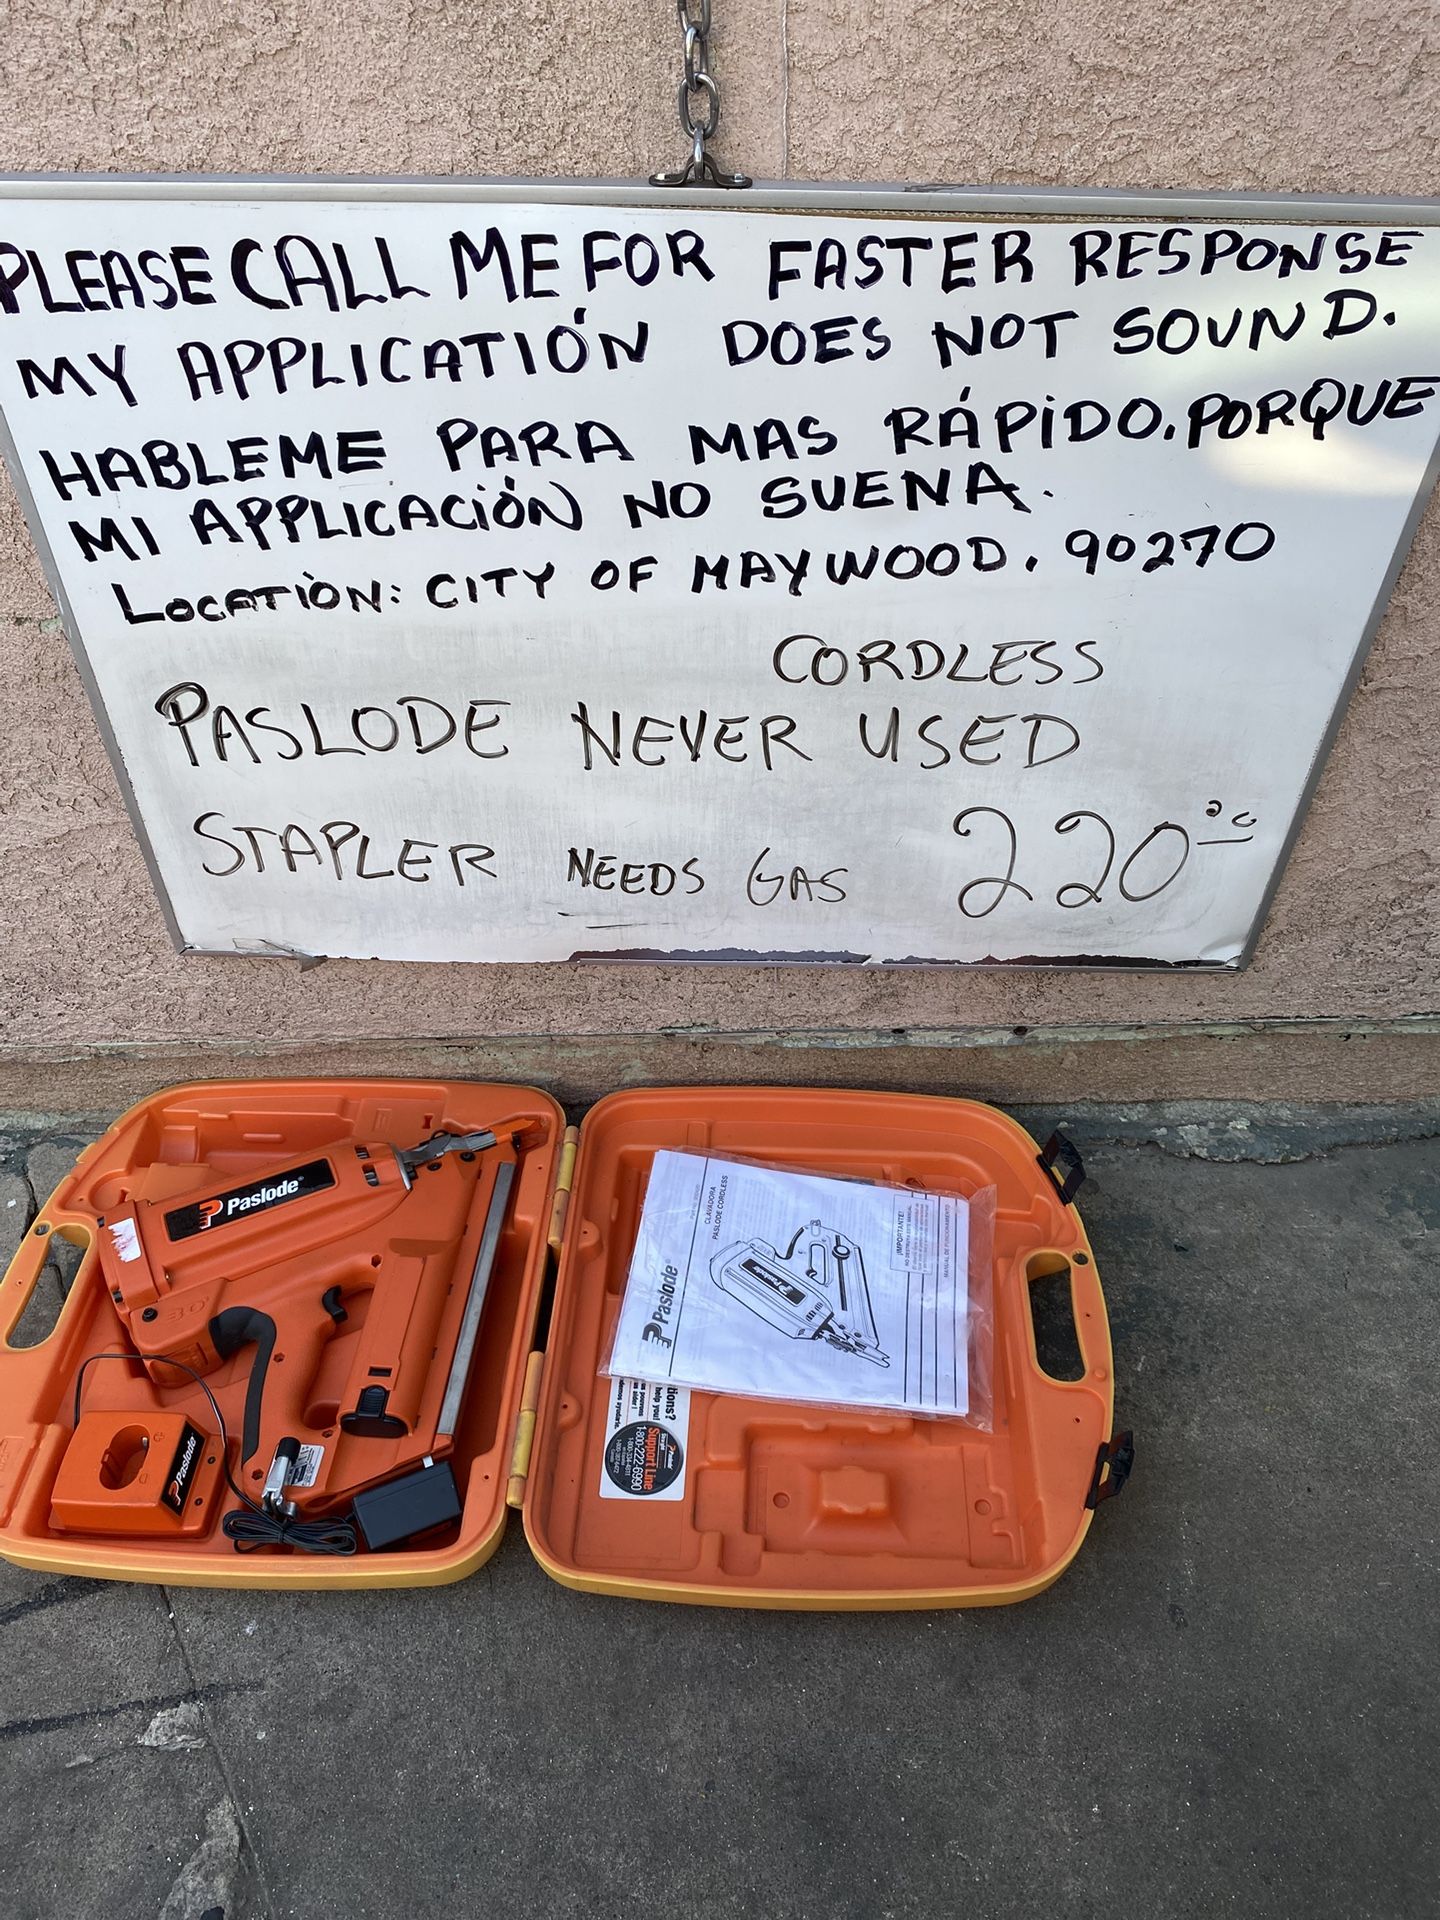 PLEASE CALL ME FOR FASTER RESPONSE
MY APPLICATIÓN DOES NOT SOUND.
HABLEME PARA MAS RÁPIDO. PORQUE
MI APPLICACIÓN NO SUENA.
LOCATION: CITY OF MAYWOOD. 90270
CORDLESS
PASLODE NEVER USED
STAPLER NEEDS GAS 220 oc
Paslode
30°
Paslode
CLAVADORA
PASLODE CORDLESS
¡IMPORTANTE!
MANUAL DE FUNCIONAMIENTO
Paslode
Paslode
tions?
help you!
Paslode
Straight
Support Line
1-800-222-6990